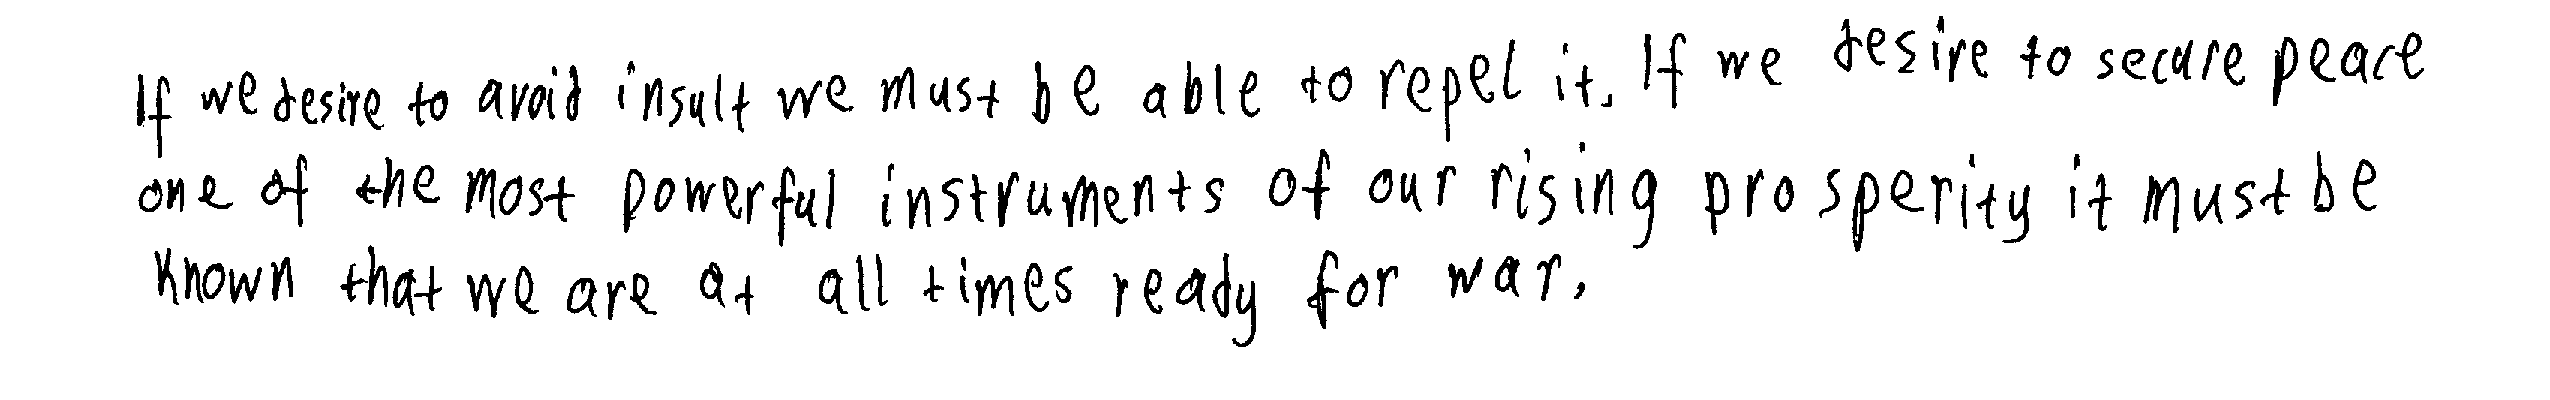 If we desire to avoid insult we must be able to repel it. If we desire to secure peace
one of the most powerful instruments of our rising prosperity it must be
known that we are at all times ready for war.